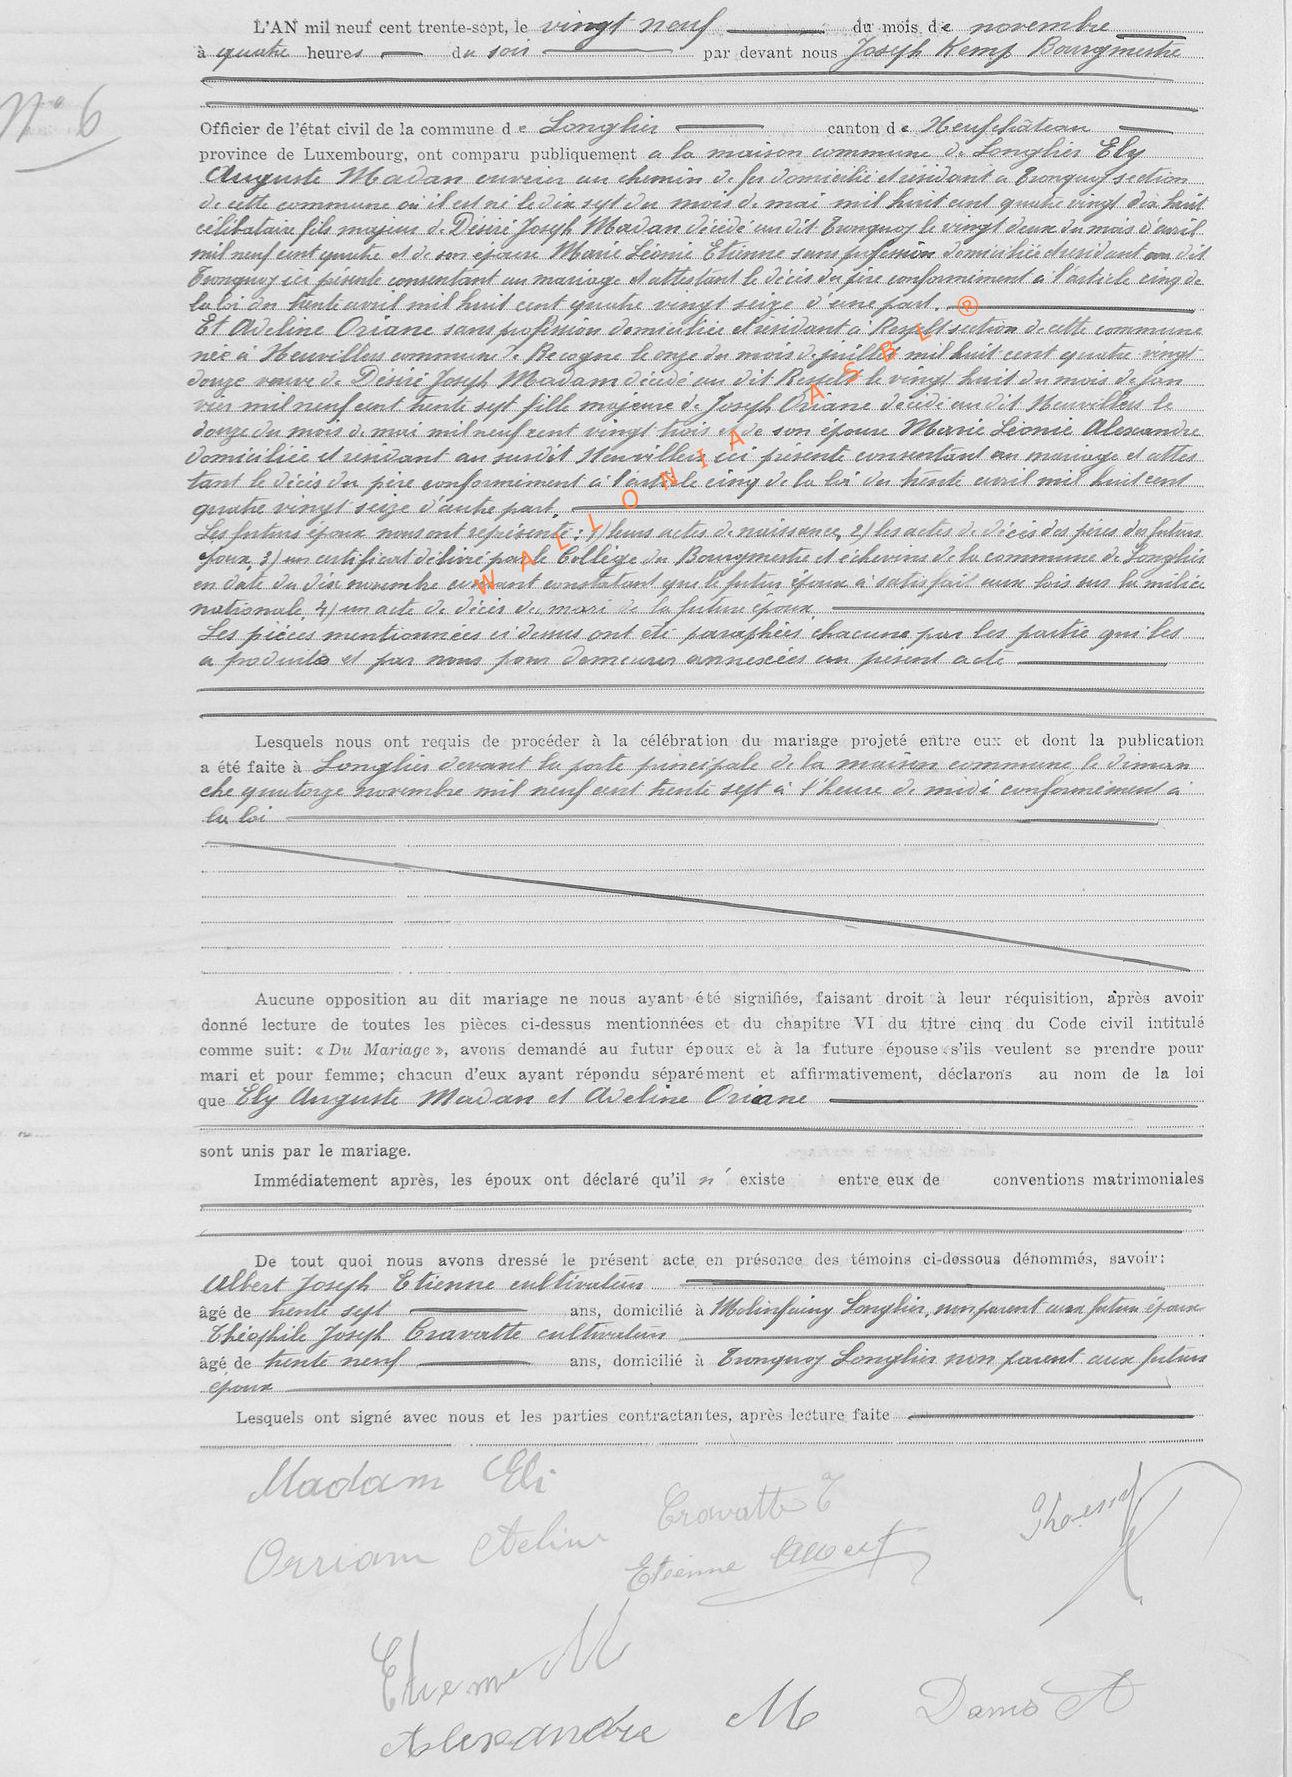 L'AN mil neuf cent trente-sept, le vingt neuf du mois de novembre
à quatre heures du soir par devant nous Joseph Kemp Bourgmestre
N° 6
Officier de l'état civil de la commune de Longlier canton de Neufchâteau
province de Luxembourg, ont comparu publiquement a la maison commune de Longlier Ely
Auguste Madan ouvrier au chemin de fer domicilié et résidant a Tronquoy section
de cette commune où il est né le dix sept du mois de mai mil huit cent quatre vingt dix huit
célibataire fils majeur de Désiré Joseph Madan décédé au dit Tronquoy le vingt deux du mois d'avril
mil neuf cent quatre et de son épouse Marie Léonie Etienne sans profession domiciliée et résidant au dit
Tronquoy ici présente consentant au mariage et attestant le décès du père conformément à l'article cinq de
la loi du trente avril mil huit cent quatre vingt seize d'une part.
Et Adeline Oriane sans profession domiciliée et résidant à Respelt section de cette commune
née à Neuvillers commune de Recogne le onze du mois de juillet mil huit cent quatre vingt
douze veuve de Désiré Joseph Madam décédé au dit Respelt le vingt huit du mois de jan
vier mil neuf cent trente sept fille majeure de Joseph Oriane décédé au dit Neuvillers le
douze du mois de mai mil neuf cent vingt trois et de son épouse Marie Léonie Alexandre
domiciliée et résidant au susdit Neuvillers ici présente consentant au mariage et attes
tant le décès du père conformément à l'article cinq de la loi du trente avril mil huit cent
quatre vingt seize d'autre part.
Les futurs époux nous ont représenté : 1) leurs actes de naissance, 2) les actes de décès des pères des futurs
époux, 3) un certificat délivré par le Collège du Bourgmestre et échevins de la commune de Longlier
en date du dix novembre courant constatant que le futur époux a satisfait aux lois sur la milice
nationale. 4) un acte de décès du mari de la future épouse.
Les pièces mentionnées ci dessus ont été paraphées chacune par les partie qui les
a produites et par nous pour demeurer annexées au présent acte
WALLONIA ASBL ®
Lesquels nous ont requis de procéder à la célébration du mariage projeté entre eux et dont la publication
a été faite à Longlier devant la porte principale de la maison commune le diman
che quatorze novembre mil neuf cent trente sept à l'heure de midi conformément à
la loi
Aucune opposition au dit mariage ne nous ayant été signifiée, faisant droit à leur réquisition, après avoir
donné lecture de toutes les pièces ci-dessus mentionnées et du chapitre VI du titre cinq du Code civil intitulé
comme suit: « Du Mariage », avons demandé au futur époux et à la future épouse s'ils veulent se prendre pour
mari et pour femme; chacun d'eux ayant répondu séparément et affirmativement, déclarons au nom de la loi
que Ely Auguste Madan et Adeline Oriane
sont unis par le mariage.
Immédiatement après, les époux ont déclaré qu'il n' existe entre eux de conventions matrimoniales
De tout quoi nous avons dressé le présent acte en présence des témoins ci-dessous dénommés, savoir:
Albert Joseph Etienne cultivateur
âgé de trente sept ans, domicilié à Molinfaing Longlier, non parent aux futurs époux
Théophile Joseph Cravatte cultivateur
âgé de trente neuf ans, domicilié à Tronquoy Longlier non parent aux futurs
époux
Lesquels ont signé avec nous et les parties contractantes, après lecture faite
Madam Eli
Cravatte T
Orriam Adeline
Etienne Albert
Etienne M
Alexandre M